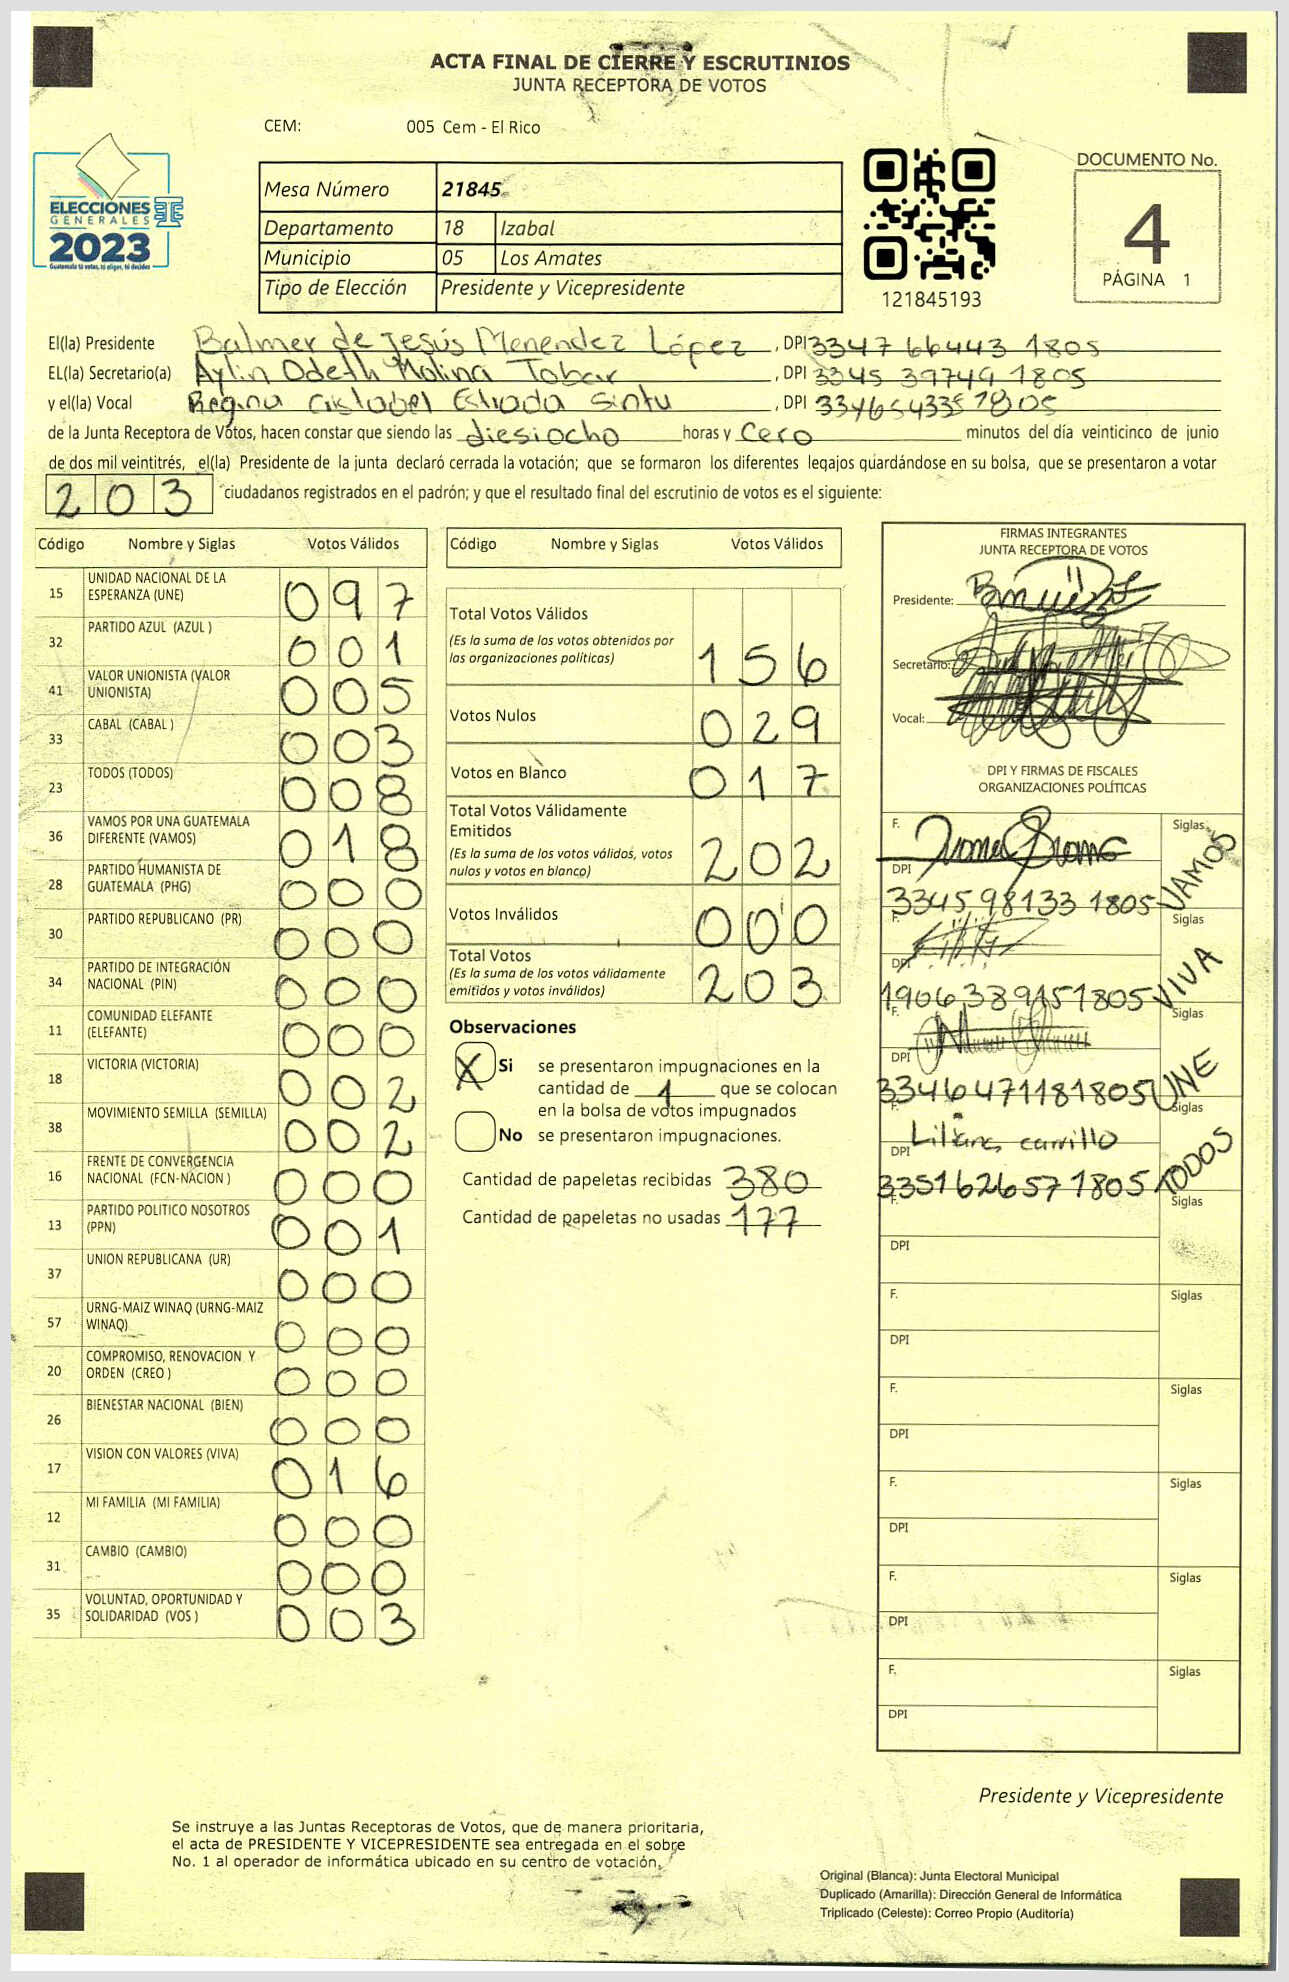 ACTA FINAL DE CIERRE Y ESCRUTINIOS
JUNTA RECEPTORA DE VOTOS
CEM: 005 Cem - El Rico
ELECCIONES
GENERALES
2023
Guatemala tú votas, tú eliges, tú decides
Mesa Número 21845
Departamento 18 Izabal
Municipio 05 Los Amates
Tipo de Elección Presidente y Vicepresidente
121845193
DOCUMENTO No.
4
PÁGINA 1
El(la) Presidente Balmer de Jesús Menendez López , DPI 3347 66443 1805
EL(la) Secretario(a) Aylin Odeth Molina Tobar , DPI 3345 39749 1805
y el(la) Vocal Regina Cristabel Estrada Sintu , DPI 334654335 1805
de la Junta Receptora de Votos, hacen constar que siendo las diesiocho horas y cero minutos del día veinticinco de junio
de dos mil veintitrés, el(la) Presidente de la junta declaró cerrada la votación; que se formaron los diferentes legajos guardándose en su bolsa, que se presentaron a votar
203 ciudadanos registrados en el padrón; y que el resultado final del escrutinio de votos es el siguiente:
Código Nombre y Siglas Votos Válidos
15 UNIDAD NACIONAL DE LA ESPERANZA (UNE) 097
32 PARTIDO AZUL (AZUL ) 001
41 VALOR UNIONISTA (VALOR UNIONISTA) 005
33 CABAL (CABAL ) 003
23 TODOS (TODOS) 008
36 VAMOS POR UNA GUATEMALA DIFERENTE (VAMOS) 018
28 PARTIDO HUMANISTA DE GUATEMALA (PHG) 000
30 PARTIDO REPUBLICANO (PR) 000
34 PARTIDO DE INTEGRACIÓN NACIONAL (PIN) 000
11 COMUNIDAD ELEFANTE (ELEFANTE) 000
18 VICTORIA (VICTORIA) 002
38 MOVIMIENTO SEMILLA (SEMILLA) 002
16 FRENTE DE CONVERGENCIA NACIONAL (FCN-NACION ) 000
13 PARTIDO POLITICO NOSOTROS (PPN) 001
37 UNION REPUBLICANA (UR) 000
57 URNG-MAIZ WINAQ (URNG-MAIZ WINAQ) 000
20 COMPROMISO, RENOVACION Y ORDEN (CREO ) 000
26 BIENESTAR NACIONAL (BIEN) 000
17 VISION CON VALORES (VIVA) 016
12 MI FAMILIA (MI FAMILIA) 000
31 CAMBIO (CAMBIO) 000
35 VOLUNTAD, OPORTUNIDAD Y SOLIDARIDAD (VOS ) 003
Código Nombre y Siglas Votos Válidos
Total Votos Válidos
(Es la suma de los votos obtenidos por
las organizaciones políticas) 156
Votos Nulos 029
Votos en Blanco 017
Total Votos Válidamente
Emitidos
(Es la suma de los votos válidos, votos
nulos y votos en blanco) 202
Votos Inválidos 000
Total Votos
(Es la suma de los votos válidamente
emitidos y votos inválidos) 203
Observaciones
X Si se presentaron impugnaciones en la
cantidad de 1 que se colocan
en la bolsa de votos impugnados
No se presentaron impugnaciones.
Cantidad de papeletas recibidas 380
Cantidad de papeletas no usadas 177
FIRMAS INTEGRANTES
JUNTA RECEPTORA DE VOTOS
Presidente:
Secretario:
Vocal:
DPI Y FIRMAS DE FISCALES
ORGANIZACIONES POLÍTICAS
F. Siglas VAMOS
DPI 3345 98133 1805
F. Siglas VIVA
DPI 1906389151805
F. Siglas UNE
DPI 3346471181805
F. Liliana carrillo Siglas TODOS
DPI 3351626571805
F. Siglas
DPI
F. Siglas
DPI
F. Siglas
DPI
F. Siglas
DPI
F. Siglas
DPI
F. Siglas
DPI
Presidente y Vicepresidente
Se instruye a las Juntas Receptoras de Votos, que de manera prioritaria,
el acta de PRESIDENTE Y VICEPRESIDENTE sea entregada en el sobre
No. 1 al operador de informática ubicado en su centro de votación.
Original (Blanca): Junta Electoral Municipal
Duplicado (Amarilla): Dirección General de Informática
Triplicado (Celeste): Correo Propio (Auditoría)